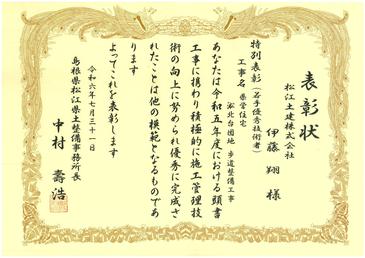 表彰状
松江土建株式会社
伊藤 翔 様
特別表彰(若手優秀技術者)
工事名 県営住宅
淞北台団地 歩道整備工事
あなたは令和五年度における頭書
工事に携わり積極的に施工管理技
術の向上に努められ優秀に完成さ
れたことは他の模範となるものであ
ります
よってこれを表彰します
令和六年七月三十一日
島根県松江県土整備事務所長
中村 壽浩